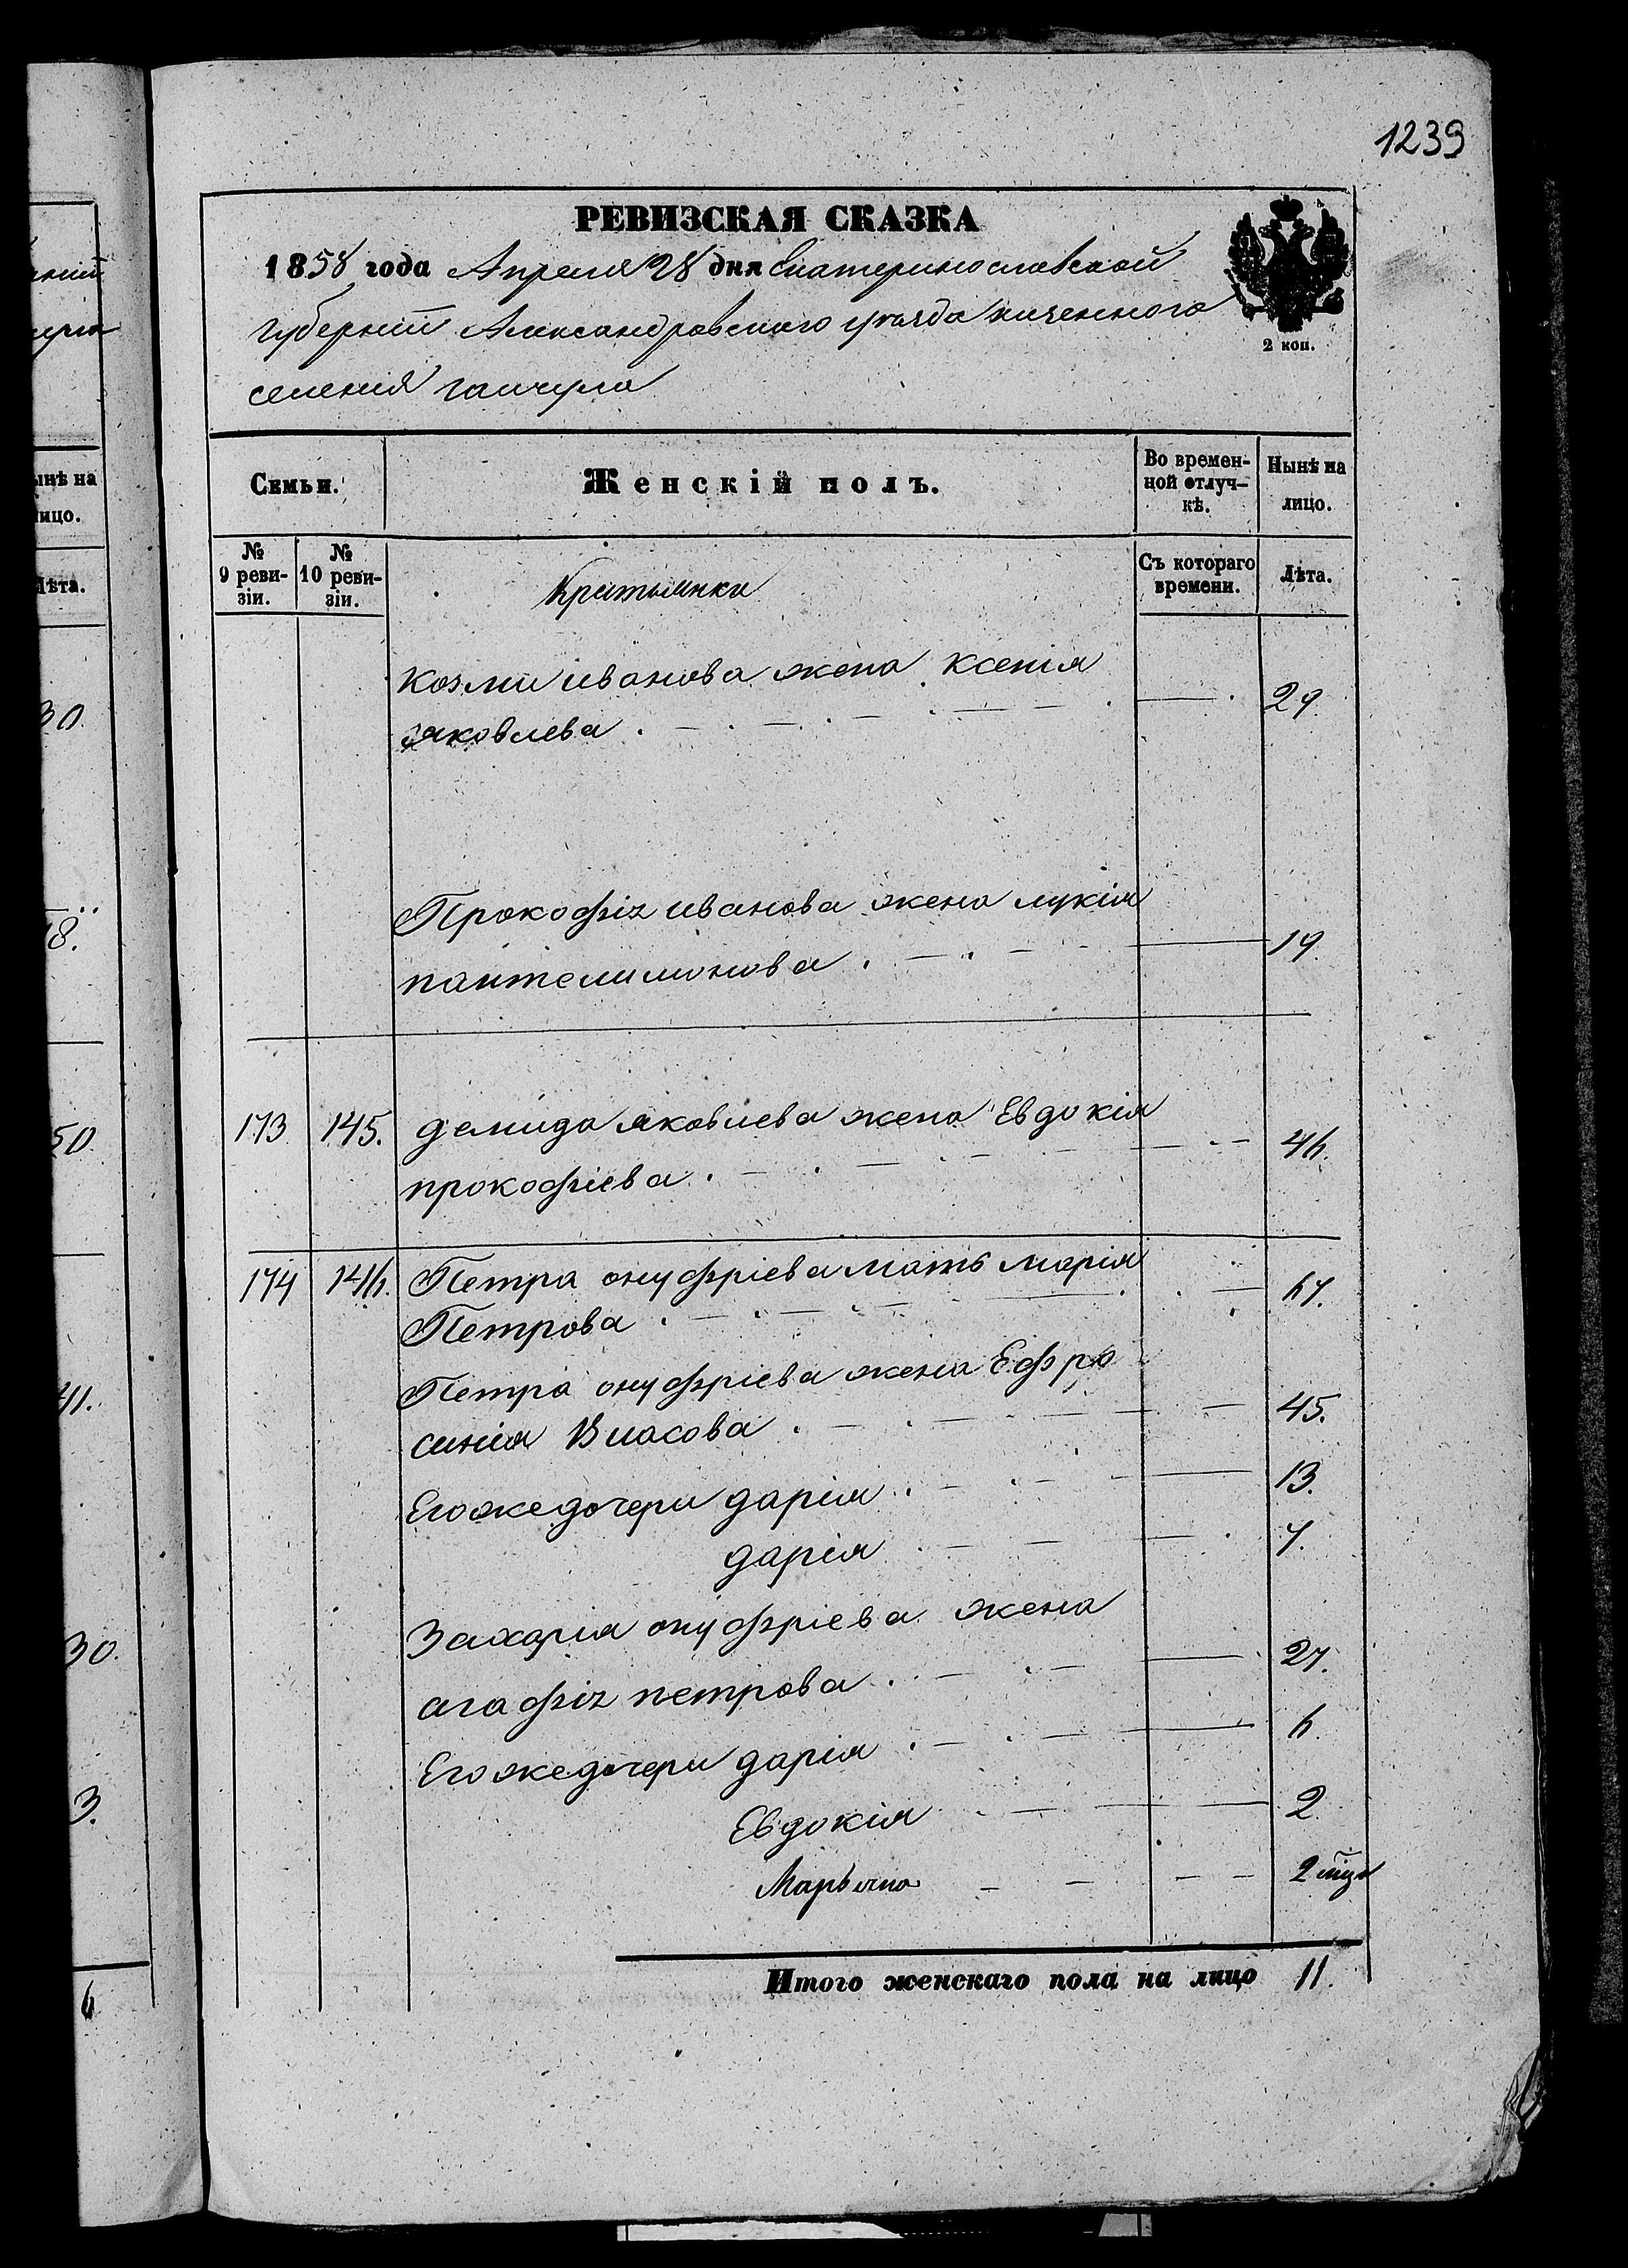 1239
РЕВИЗСКАЯ СКАЗКА
1858 года Апреля 28 дня Екатеринославской
губерніи Александровскаго уѣзда казенного
селенія гайчула
2 коп.
Семьи.
Женскій полъ.
Во времен-
ной отлуч-
кѣ.
Нынѣ на
лицо.
№
9 реви-
зіи.
№
10 реви-
зіи.
Крестьянки
Съ котораго
времени.
Лѣта.
козми иванова жена ксенія
яковлева 29.
Прокофія иванова жена лукія
пантелимонова 19.
173. 145. демида яковлева жена Евдокія
прокофіева 46.
174 146. Петра онуфріева мать марія
Петрова 67.
Петра онуфріева жена Ефро
синія Власова 45.
Егоже дочери дарія 13.
дарія 7.
Захарія онуфріева жена
агафія петрова 27.
Егоже дочери дарія 6.
Евдокія 2
Марьяна 2 міц
Итого женскаго пола на лицо 11.
ынѣ на
ицо.
ѣта.
30.
18.
50.
41.
30.
3.
6